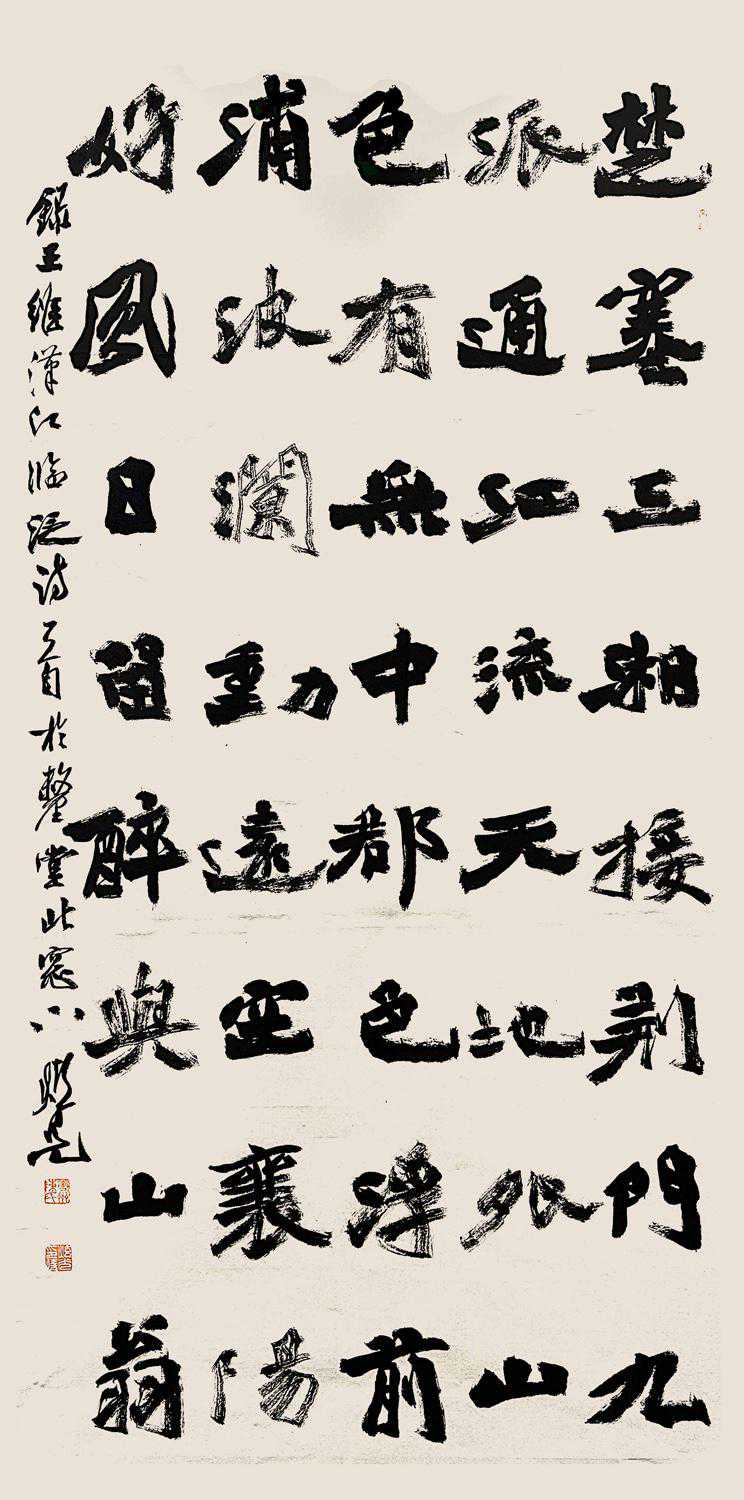 楚塞三湘接荆門九
派通江流天地外山
色有無中都色浮前
浦波瀾動遠空襄陽
好風日留醉與山翁
錄王維漢江臨泛诗一首於堂北窓下